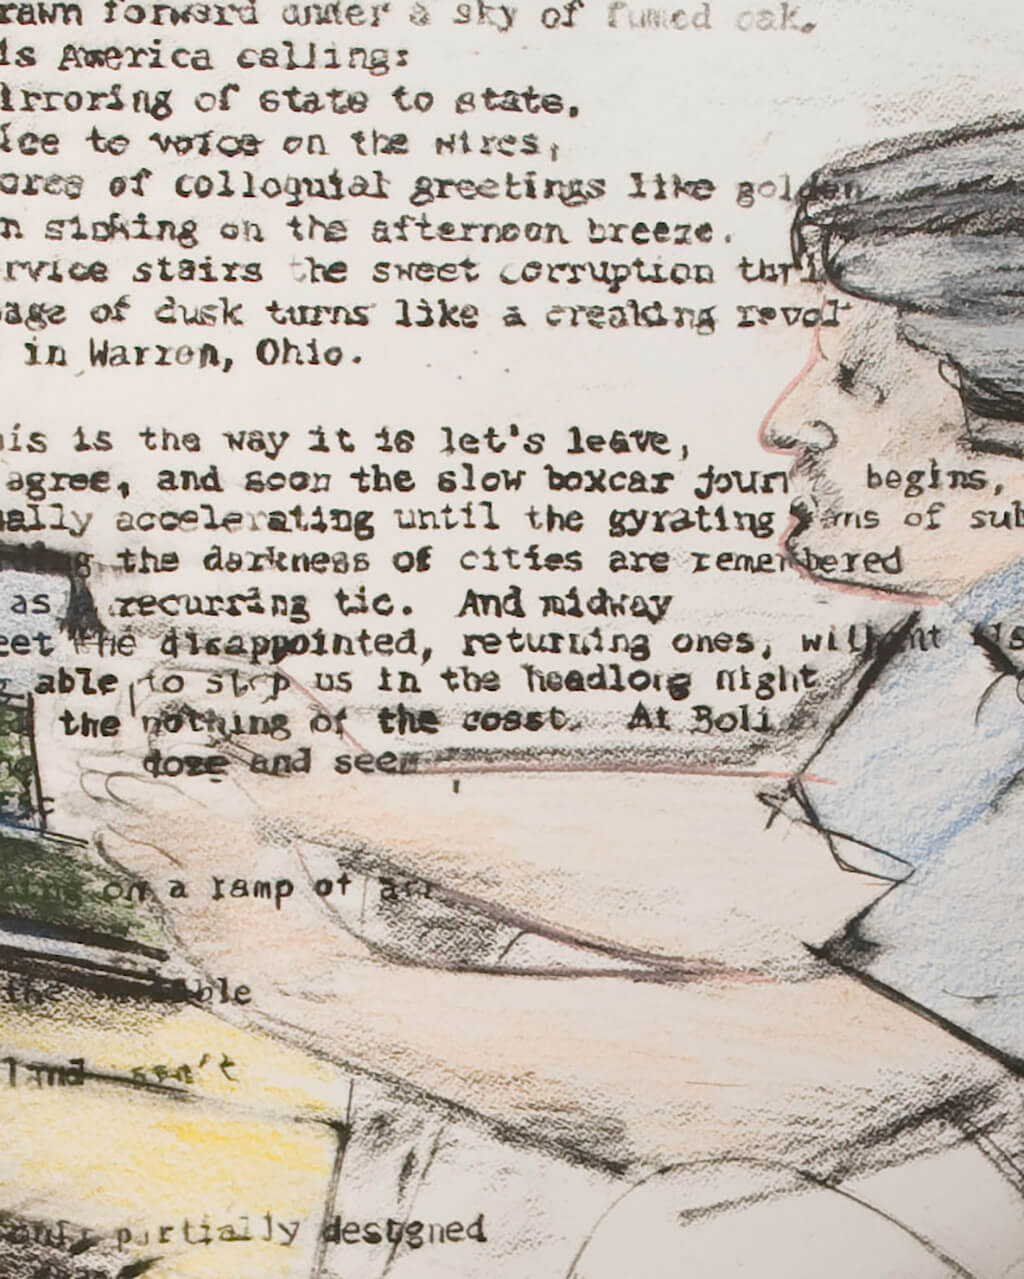 rawn forward under a sky of fumed oak.
is America calling:
irroring of state to state,
ice to voice on the wires,
orce of colloquial greetings like golden
n sinking on the afternoon breeze.
rvice stairs the sweet corruption thri
page of dusk turns like a creaking revol
in Warren, Ohio.
his is the way it is let's leave,
agree, and soon the slow boxcar journ begins,
ually accelerating until the gyrating of sub
the darkness of cities are remembered
as recurring tic. And midway
eet the disappointed, returning ones,
able to stop us in the headlong night
the nothing of the coast. At Boli
doze and seem
on a ramp of
the
land
partially designed